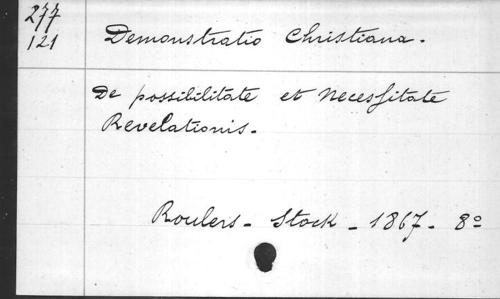 277
121
Demonstratio Christiana.
De possibilitate et necessitate
Revelationis.
Roulers - Stock - 1867 - 8º